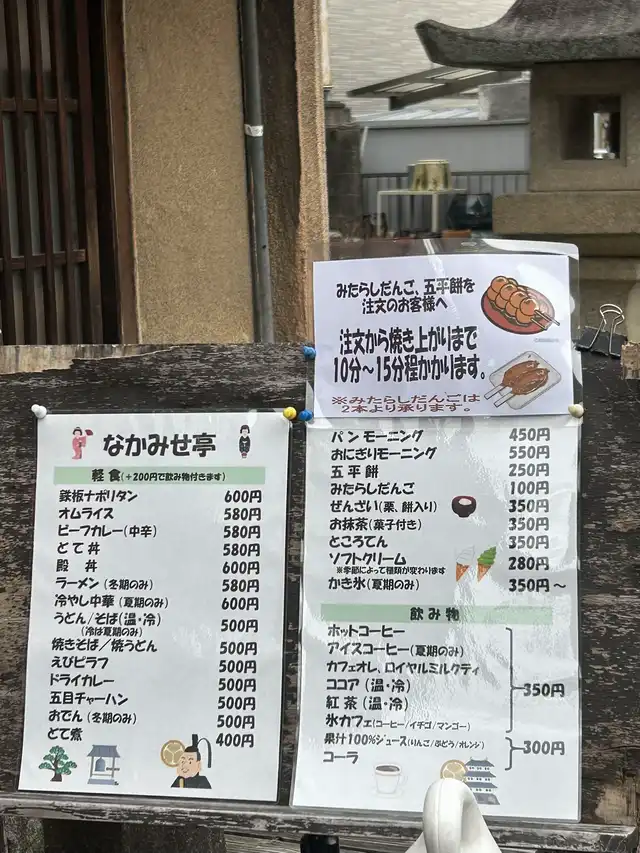 みたらしだんご、五平餅を
注文のお客様へ
注文から焼き上がりまで
10分～15分程かかります。
※みたらしだんごは
2本より承ります。
なかみせ亭
軽食(+200円で飲み物付きます)
鉄板ナポリタン 600円
オムライス 580円
ビーフカレー(中辛) 580円
とて丼 580円
殿丼 600円
ラーメン(冬期のみ) 580円
冷やし中華(夏期のみ) 600円
うどん/そば(温・冷) 500円
(冷は夏期のみ)
焼きそば/焼うどん 500円
えびピラフ 500円
ドライカレー 500円
五目チャーハン 500円
おでん(冬期のみ) 500円
どて煮 400円
パンモーニング 450円
おにぎりモーニング 550円
五平餅 250円
みたらしだんご 100円
ぜんざい(栗、餅入り) 350円
お抹茶(菓子付き) 350円
ところてん 350円
ソフトクリーム 280円
※季節によって種類が変わります
かき氷(夏期のみ) 350円～
飲み物
ホットコーヒー
アイスコーヒー(夏期のみ)
カフェオレ、ロイヤルミルクティ
ココア(温・冷) 350円
紅茶(温・冷)
氷カフェ(コーヒー/イチゴ/マンゴー)
果汁100%ジュース(りんご/ぶどう/オレンジ) 300円
コーラ